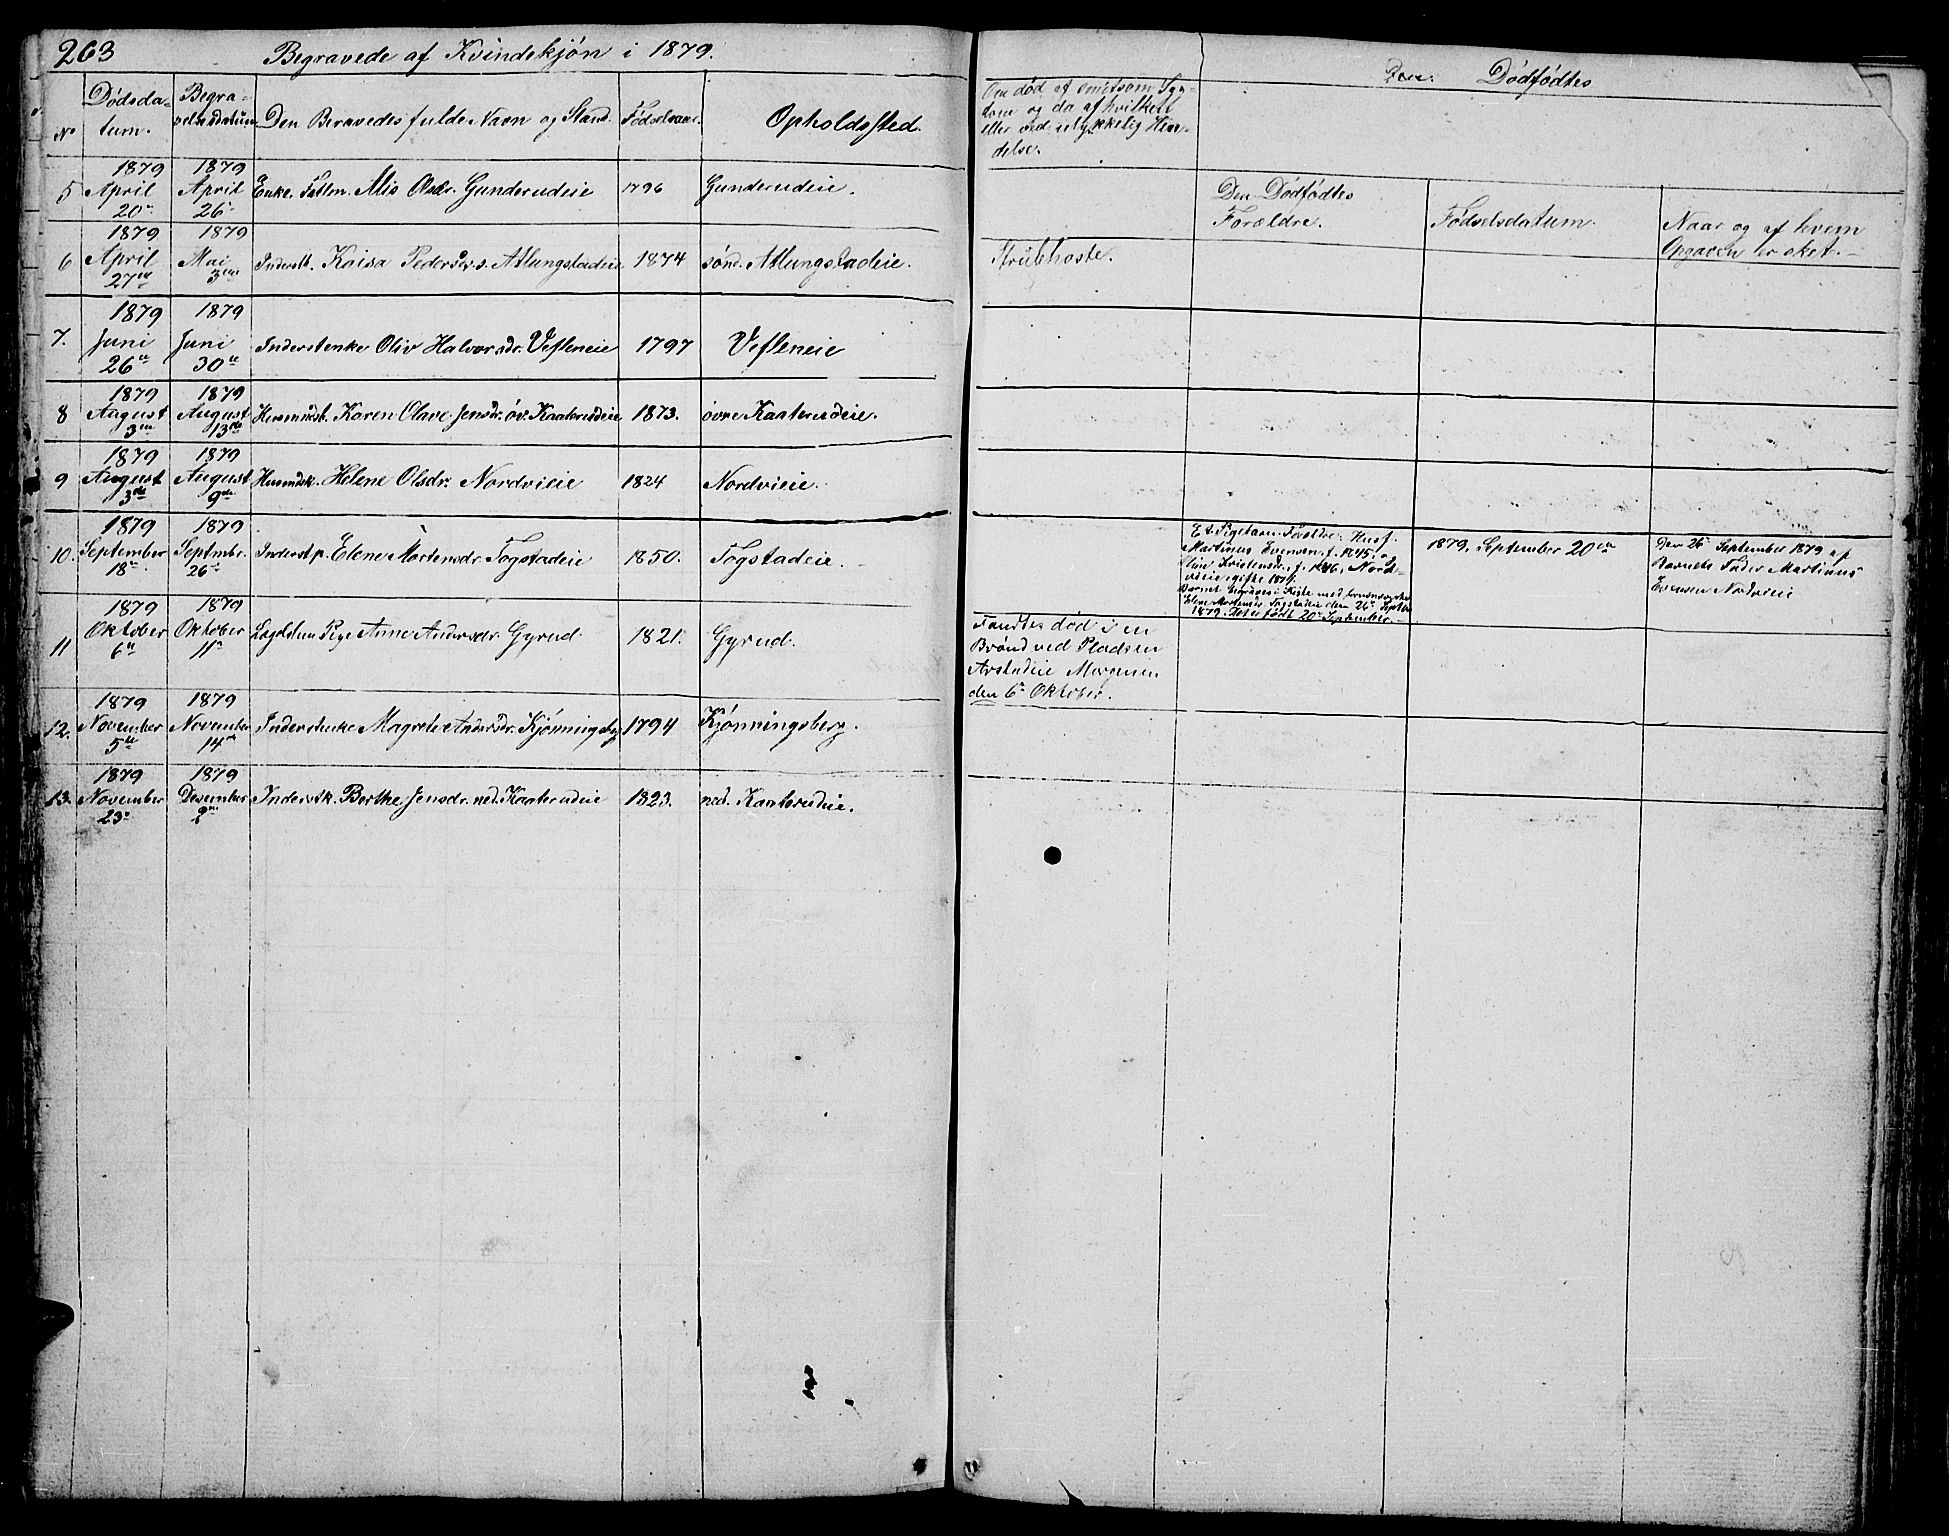 263 Begravede af Kvindekjøn i 1879.
No Dødsda-
tum. Begra-
velsesdatum Den Beravedes fulde Navn og Stand. Fødselsaar. Opholdssted.
1879 1879
5 April April Enke. Fattm. Alis Olsdr. Gunderudeie 1796 Gunderudeie.
20de 26de
1879 1879
6 April Mai Inderstb. Kaisa Pedersdr. s. Atlungstadeie 1874 søndr. Atlungstadeie.
27de 3die
1879 1879
7. Juni Juni Inderstenke Oliv Halvorsdr. Vesleneie 1797 Vesleneie
26de 30te
1879 1879
8 August August Husmdsb. Karen Olave Jensdr. øv. Kaaterudeie 1873. øvre Kaaterudeie.
3die 13de
1879 1879
9 August August Husmdsk. Helene Olsdr. Nordvieie 1824 Nordvieie.
3die 9de
1879 1879
10. September Septembr. Inderst p. Elene Mortensdr. Togstadeie 1850. Togstadeie.
18de 26de
1879 1879
11 Oktober Oktober Pige Anne Andersdr. Gyrud. 1821. Gyrud.
6te 11te
1879 1879
12. November November Inderstenke Magrete Andersdr. Kjønningsbg 1794 Kjønningsberg.
5te 14de
1879 1879
13. November Desember Inderstk. Berthe Jensdr. ned. Kaaterudeie 1823. ned. Kaaterudeie.
23de 2den
Om død af smitsom Syg-
dom og da af hvilken
eller ved ulykkelig Hæn-
delse.
Dødfødtes
Den Dødfødtes
Forældre.
Fødselsdatum.
Naar og af hvem
Opgaven er sket.
Strubhoste.
Et Pigebarn. Foreldre: Husf.
Martinus Evensen, f. 1845, og
Kristensdr., f. 1846, Nord-
vieie, gifte 1874.
Barnet begraves i Kiste med
Elene Mortensdr Togstadeie den 26de Septbr
1879. Det er født 20de September.
1879, September 20de
Den 26de September 1879 af
Barnets Fader Martinus
Evensen Nordvieie
Fandtes død i en
Brønd ved Pladsen
Arstadeie Morgenen
den 6te Oktober.